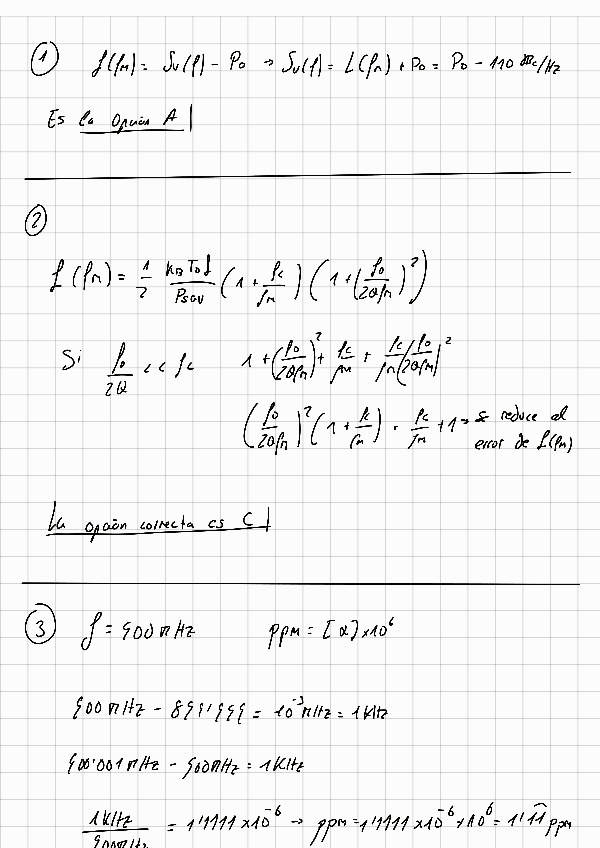 ① ℒ(fm) = Sv(f) - Po → Sv(f) = L(fm) + Po = Po - 110 dBc/Hz
Es la opción A
②
ℒ(fm) = 1/2 KB To f/Psav (1 + fc/fm) (1 + (fo/2Qfm)²)
Si fo/2Q << fc 1 + (fo/2Qfm)² + fc/fm + fc/fm (fo/2Qfm)²
(fo/2Qfm)² (1 + fc/fm) + fc/fm + 1 → se reduce al
error de ℒ(fm)
La opción correcta es C
③ f = 900 MHz ppm = [α] x10⁶
900 MHz - 899'999 = 10⁻³ MHz = 1 KHz
900'001 MHz - 900 MHz = 1 KHz
1 KHz/900 MHz = 1'1111 x10⁻⁶ → ppm = 1'1111 x10⁻⁶ x10⁶ = 1'11 ppm